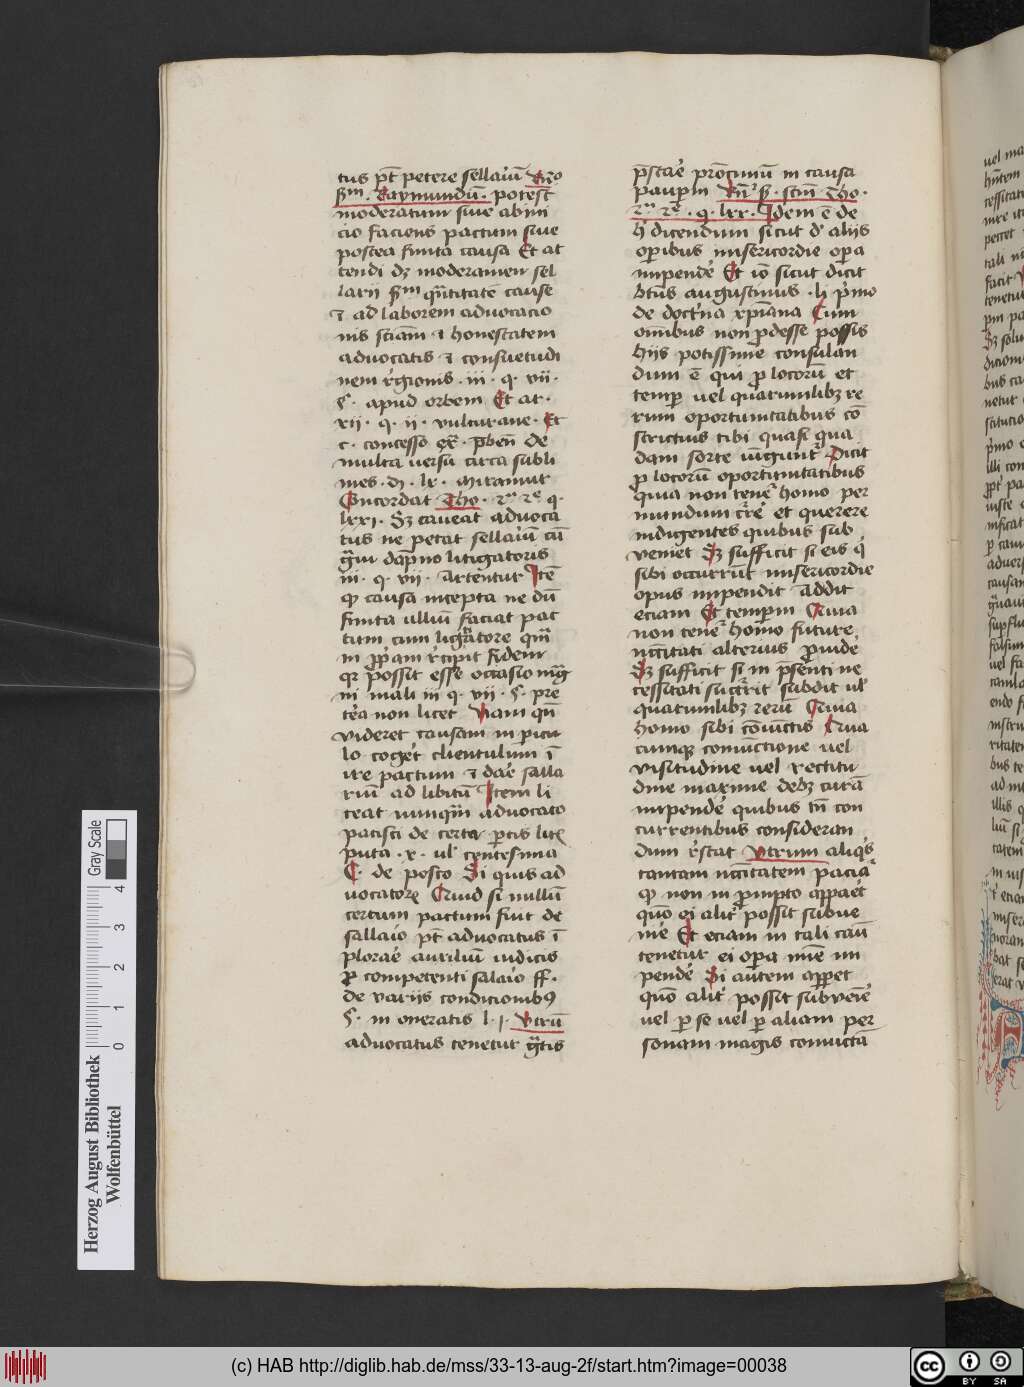 tus pt̄ petere sellaiū Rño
scdm · Raymundū · potest
moderatum siue abini
cio faciens pactum siue
postea finita causa Et at
tendi dz moderamen sel
larii scdm qu̅titatē cause
⁊ ad laborem aduocacio
nis sciam̄ ⁊ honestatem
aduocatis ⁊ consuetudi
nem regionis · iii · q · vii ·
§ · apud orbem Et ar ·
xii · q · ii · vulturane · Et
c · concesso ex̄ · p̄ben̄ de
multa uersū circa subli
mes · di · lx · miramur
Concordat Tho · 2ᵃ 2ᵉ q ·
lxxi · Sz caueat aduoca
tus ne petat sellaiū cū
g̃ui dāpno litigatoris
iii · q · vii · arcentur Itē
ꝙ causā incepta ne dū
finita ullum faciat pac
tum cum ligatore qm̄
in ꝓp̄am recipit fidem
qr possit esse occasio mag̃
ni mali iii q · vii · § · pre
tea non licet Nam qn̄
videret causam in picu
lo coget clientulum ī
ire pactum ⁊ dāe salla
rium ad libitū Item li
ceat nunq̄m aduocato
pacisci de certa ꝑtis litꝭ
puta · x · ul̄ centesima
C · de posto Si quis ad
uocatorꝝ Quid si nullū
certum pactum fiut de
sallaio pt̄ aduocatus ī
plorae auxilium iudicis
ꝓ competenti salaio ff ·
de variis condicionibꝰ
§ · in oneratis l · j · Vtrū
aduocatus tenetur g̃tis
p̄stāe prox̄imū in causa
paupm Rn̄ scdm scm̄ Tho ·
2ᵃ 2ᵉ · q · lxx · Idem ē de
h̄ dicendum sicut d̄ aliis
oꝑibus misericordie oꝑa
impende Et io sicut dicit
btūs augustinus · li pmo
de doctrina xp̄iana Cum
om̄ibus non ꝓdesse possis
hiis potissime consulan
dum ē qui ꝓ locorū et
tempꝝ uel quarumlibz re
rum oportunitatibus cō
strictius tibi quasi qua
dam sorte iu̅gunt̄ Dicit
ꝓ locorū oportunitatibus
quia non tenet̄ homo per
mundum q̄rere et querere
indigentes quibus sub
ueniet Sz sufficit si eis q̄
sibi occurrūt misericordie
opus impendit Addit
eciam Et tempꝝ Quia
non tenet̄ homo future
nc̄citati alterius ꝓuide
Sz sufficit si in p̄senti ne
cessitati succurrit subdit ul̄
quarumlibz rerū Quia
homo sibi cōiunctis Qua
cumqꝫ coniunctione uel
visitudine uel rectitu
dine maxime debz curā
impende quibus tn̄ con
currentibus consideran
dum restat Vtrum aliqs
tantam nc̄citatem pacia
ꝙ non in ꝓmpto appaet
quō ei alit̄ possit subue
nie Et eciam in tali cāu
tenetur ei oꝑa mīe im
pende Si autem appet
quō alit̄ possit subueīe
uel ꝑ se uel ꝑ aliam per
sonam magis coniuncta
Herzog August Bibliothek
Wolfenbüttel
Gray Scale
0 1 2 3 4
(c) HAB http://diglib.hab.de/mss/33-13-aug-2f/start.htm?image=00038
cc BY SA